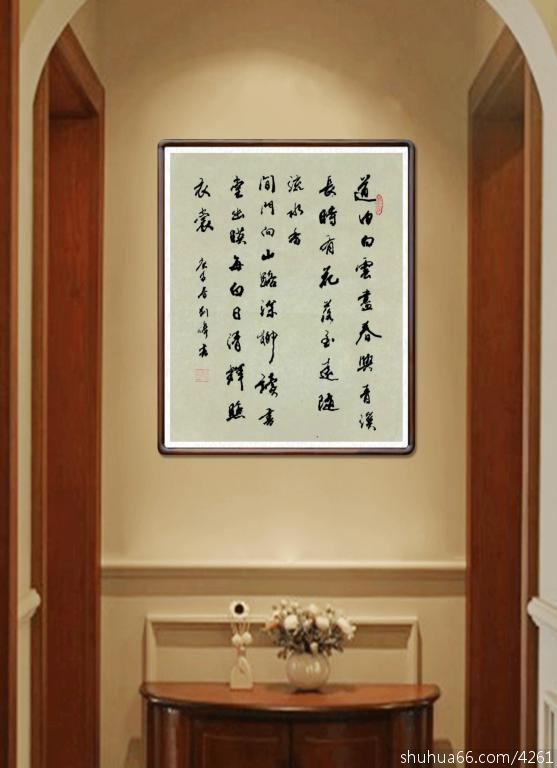 道由白雲盡春與青溪
長時有花落至遠隨
流水香
间門向山路深柳讀書
堂出暎每白日清輝照
衣裳
庚子春刘峰书
shuhua66.com/4261